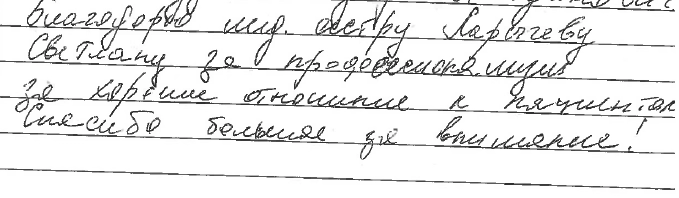 благодарю мед. сестру Ларичеву
Светлану за профессионализм
за хорошие отношение к пациентам
Спасибо большое за внимание!